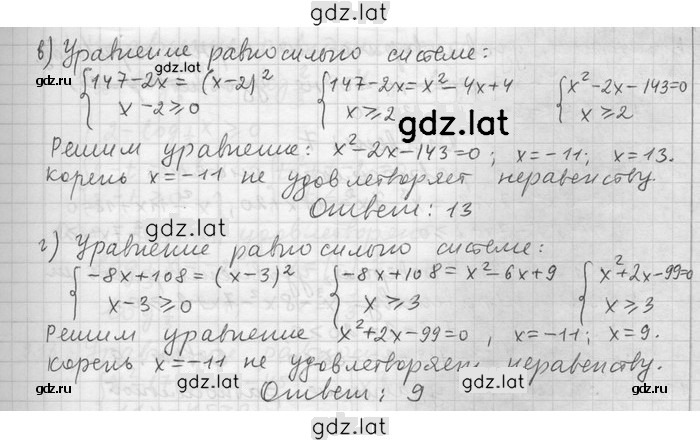 gdz.lat
в) Уравнение равносильно системе:
gdz.lat
{ 147-2x = (x-2)² { 147-2x = x²-4x+4 { x²-2x-143=0
x-2≥0 x≥2 x≥2
gdz.lat
Решим уравнение: x²-2x-143=0; x=-11; x=13.
корень x=-11 не удовлетворяет неравенству.
Ответ: 13
gdz.lat
г) Уравнение равносильно системе:
{ -8x+108 = (x-3)² { -8x+108 = x²-6x+9 { x²+2x-99=0
x-3≥0 x≥3 x≥3
gdz.lat
Решим уравнение x²+2x-99=0, x=-11; x=9.
корень x=-11 не удовлетворяет неравенству.
gdz.lat
Ответ: 9
gdz.lat
gdz.lat
gdz.lat
gdz.lat
gdz.lat